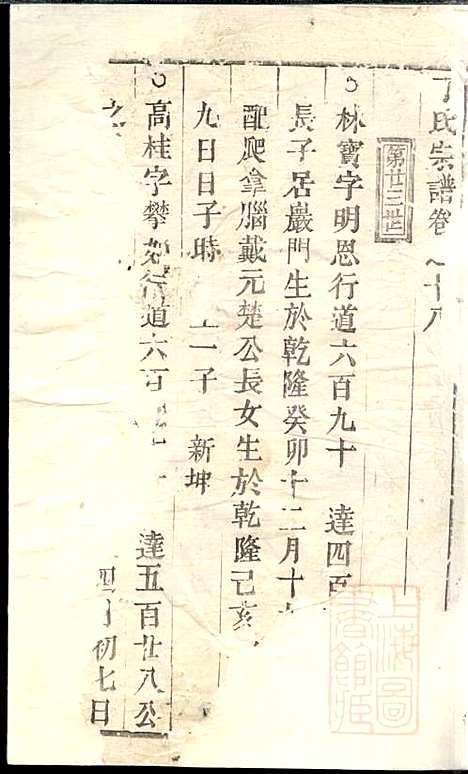 丁氏宗譜卷 十八
第廿三世
○林寶字明恩行道六百九十 達四百
長子居巖門生於乾隆癸卯十二月十
配爬拿腦戴元楚公長女生於乾隆己亥
九日日子時 一子 新坤
○高桂字攀 行道六百 達五百廿八公
四月初七日
上海圖書館